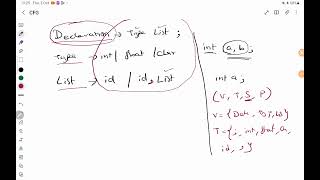 CFG
Declaration → Type List ;
Type → int / float / char
List → id / id, List
int a, b;
int a;
(V, T, S, P)
V = {Decl, Type, List}
T = {;, int, float, ch,
id, ,}